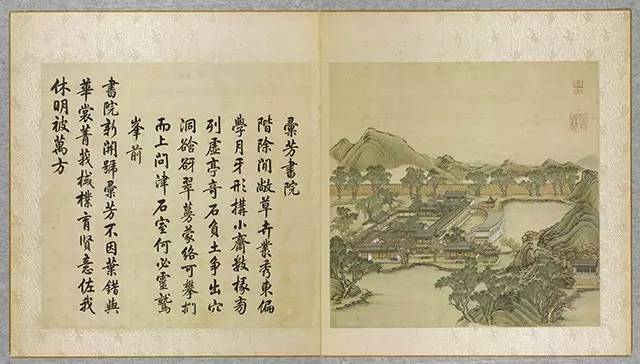 彚芳書院
階除閒敞草卉叢秀東偏
學月牙形構小齋數椽旁
列虛亭奇石負土爭出穴
洞谽谺翠蔓蒙絡可攀捫
而上問津石室何必靈鷲
峯前
書院新開號彚芳不因葉錯與
華裳菁莪棫樸育賢意佐我
休明被萬方